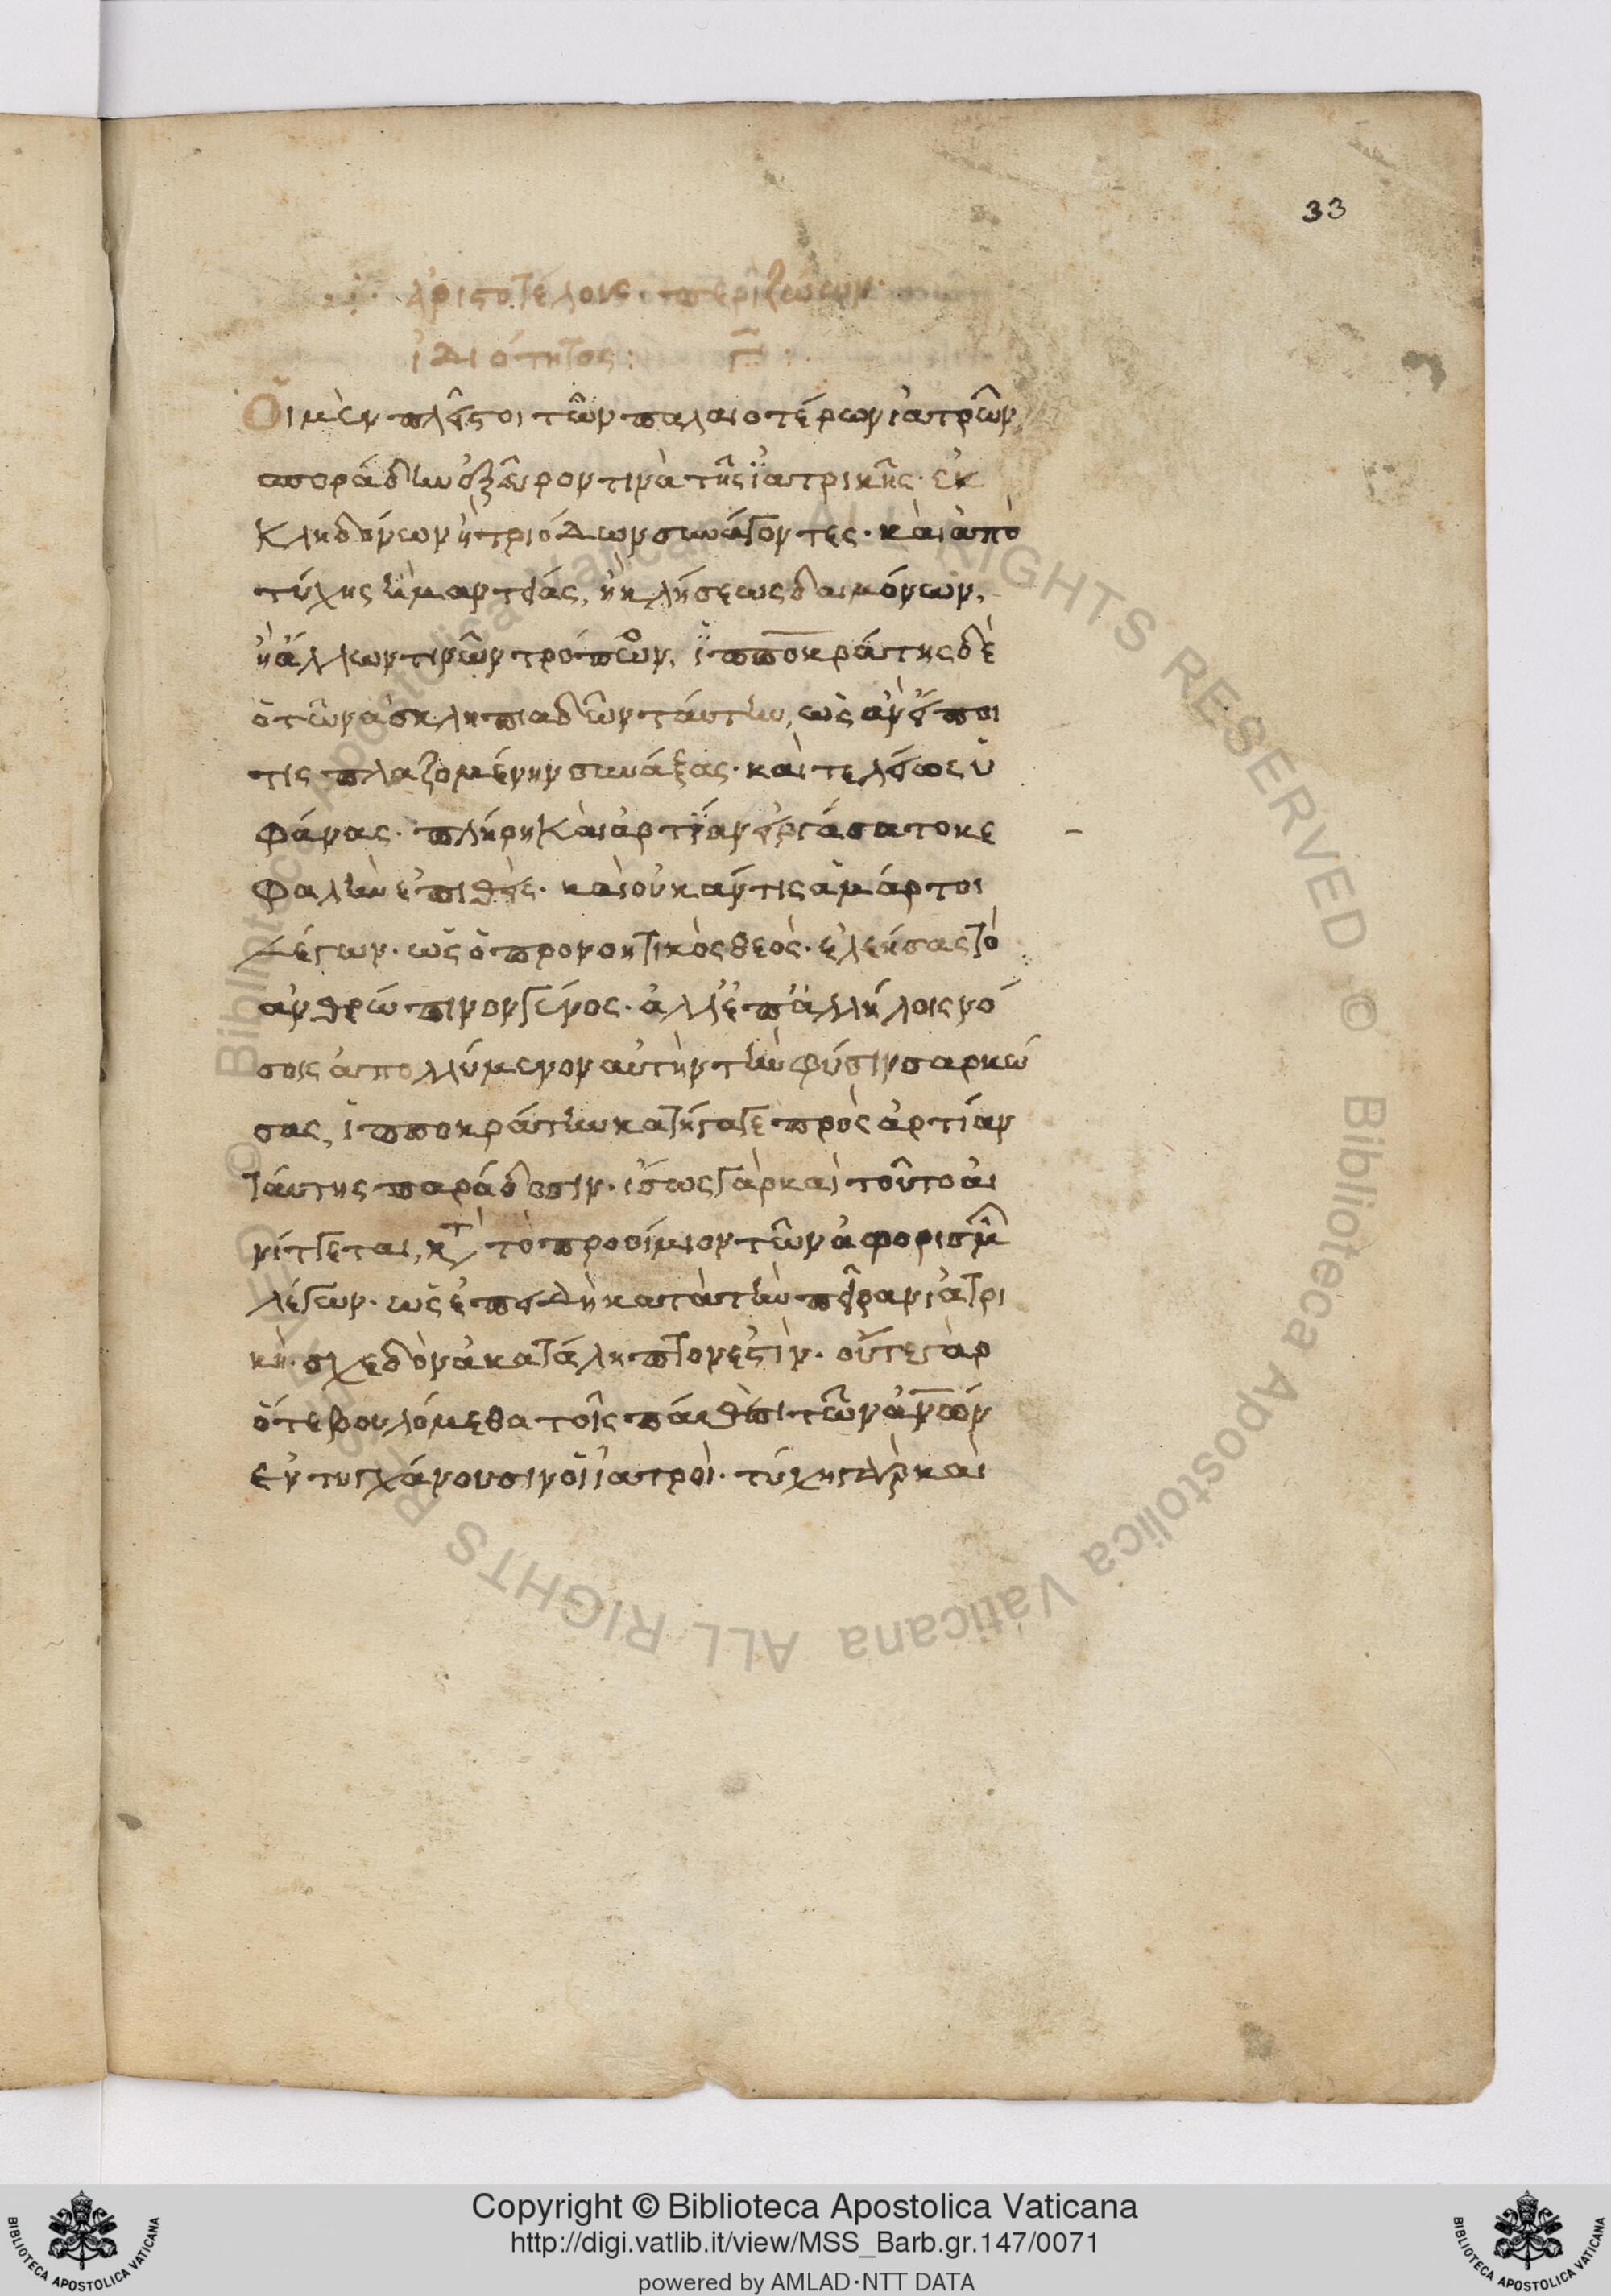 33
ἀριστοτέλους περὶ ζώων
ἰδιότητος: Γ:
Οἱ μὲν πλεῖστοι τῶν παλαιοτέρων ἰατρῶν,
σποράδην ἐξεῦρον τινὰ τῆς ἰατρικῆς· ἐκ
κληδόνων ἢ τριόδων συνάγοντες· καὶ ἀπὸ
τύχης ἢ μαρτείας, ἢ κλήσεως δαιμόνων,
ἢ ἄλλων τινῶν τρόπων, ἱπποκράτης δὲ
ὁ τῶν ἀσκληπιαδῶν ταύτην, ὡς ἂν εἴποι
τις πλαζομένην συνάξας· καὶ τελείως ὑ
φάνας· πλήρη καὶ ἀρτίαν εἰργάσατο κε
φαλὴν ἐπιθείς· καὶ οὐκ ἄν τις ἁμάρτοι
λέγων· ὡς ὁ προνοητικὸς θεὸς· ἐλεήσας τὸ
ἀνθρώπινον γένος· ἀλλ' ἐπ' ἀλλήλοις νό
σοις ἀπολλύμενον αὐτὴν τὴν φύσιν σαρκώ
σας, ἱπποκράτην κατήγαγε πρὸς ἀρτίαν
ταύτης παράδοσιν· ἴσως γὰρ καὶ τοῦτο αἰ
νίττεται, κτ̀ τὸ προοίμιον τῶν ἀφορισμ
λέγων· ὡς ἐπειδὴ κατὰ τὴν πεῖραν ἰατρι
κὴ· σχεδὸν ἀκατάληπτον ἐστὶν· οὔτε γὰρ
ὅτε βουλόμεθα τοῖς πάθεσι τῶν ἀνων
ἐντυγχάνουσιν οἱ ἰατροὶ· τύχης γὰρ καὶ
Copyright © Biblioteca Apostolica Vaticana
http://digi.vatlib.it/view/MSS_Barb.gr.147/0071
powered by AMLAD·NTT DATA
BIBLIOTECA APOSTOLICA VATICANA
BIBLIOTECA APOSTOLICA VATICANA
© Biblioteca Apostolica Vaticana ALL RIGHTS RESERVED © Biblioteca Apostolica Vaticana ALL RIGHTS RESERVED